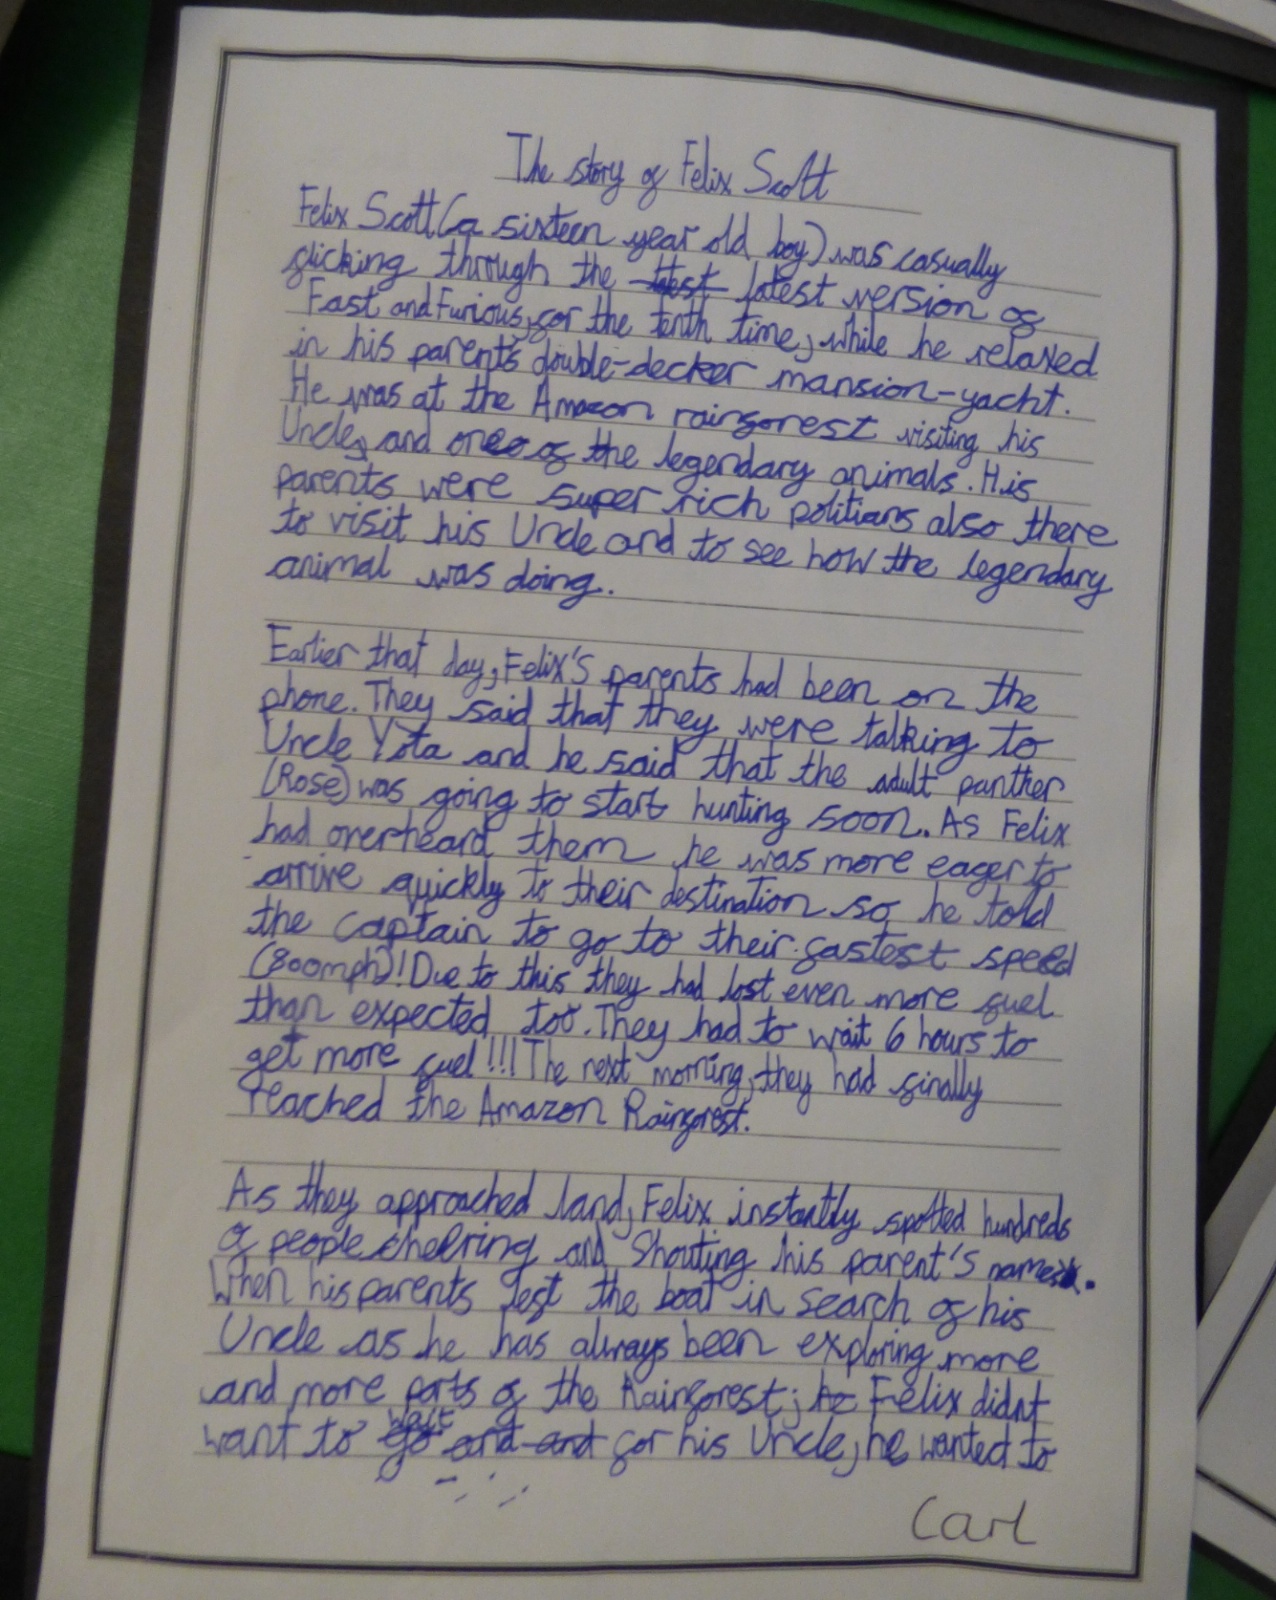 The story of Felix Scott
Felix Scott (a sixteen year old boy) was casually
flicking through the latest version of
Fast and Furious, for the tenth time, while he relaxed
in his parent's double-decker mansion-yacht.
He was at the Amazon rainforest visiting his
Uncle, and one of the legendary animals. His
parents were super rich politians also there
to visit his Uncle and to see how the legendary
animal was doing.
Earlier that day, Felix's parents had been on the
phone. They said that they were talking to
Uncle Yota and he said that the adult panther
(Rose) was going to start hunting soon. As Felix
had overheard them he was more eager to
arrive quickly to their destination so, he told
the captain to go to their fastest speed
(800mph)! Due to this they had lost even more fuel
than expected too. They had to wait 6 hours to
get more fuel!!! The next morning, they had finally
reached the Amazon Rainforest.
As they approached land, Felix instantly spotted hundreds
of people cheering and Shouting his parent's names.
When his parents left the boat in search of his
Uncle as he has always been exploring more
and more parts of the Rainforest; he Felix didnt
want to wait for his Uncle, he wanted to
Carl